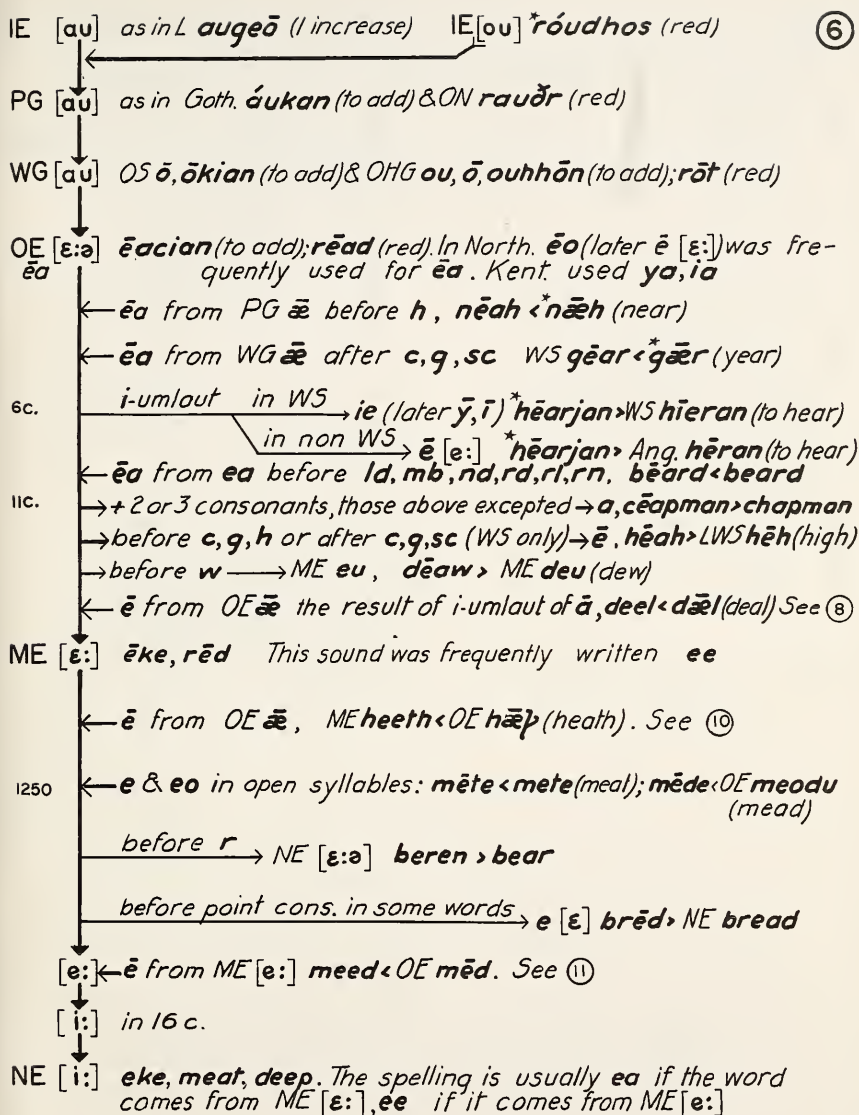 IE [au] as in L augeō (I increase) IE [ou] *róudhos (red) ⑥
PG [au] as in Goth. áukan (to add) & ON rauðr (red)
WG [au] OS ō, ōkian (to add) & OHG ou, ō, ouhhōn (to add); rōt (red)
OE [ɛ:ə] ēacian (to add); rēad (red). In North. ēo (later ē [ɛ:]) was fre-
ēa quently used for ēa. Kent. used ya, ia
ēa from PG ǣ before h, nēah < *nǣh (near)
ēa from WG ǣ after c, g, sc WS gēar < *gǣr (year)
6c. i-umlaut in WS → ie (later ȳ, ī) *hēarjan > WS hīeran (to hear)
in non WS → ē [e:] *hēarjan > Ang. hēran (to hear)
ēa from ea before ld, mb, nd, rd, rl, rn, bēard < beard
11c. → + 2 or 3 consonants, those above excepted → a, cēapman > chapman
→ before c, g, h or after c, g, sc (WS only) → ē, hēah > LWS hēh (high)
→ before w → ME eu, dēaw > ME deu (dew)
← ē from OE ǣ the result of i-umlaut of ā, deel < dǣl (deal) See ⑧
ME [ɛ:] ēke, rēd This sound was frequently written ee
← ē from OE ǣ, ME heeth < OE hǣþ (heath). See ⑩
1250 ← e & eo in open syllables: mēte < mete (meat); mēde < OE meodu
(mead)
before r → NE [ɛ:ə] beren > bear
before point cons. in some words → e [ɛ] brēd > NE bread
[e:] ← ē from ME [e:] meed < OE mēd. See ⑪
[i:] in 16 c.
NE [i:] eke, meat, deep. The spelling is usually ea if the word
comes from ME [ɛ:], ee if it comes from ME [e:]